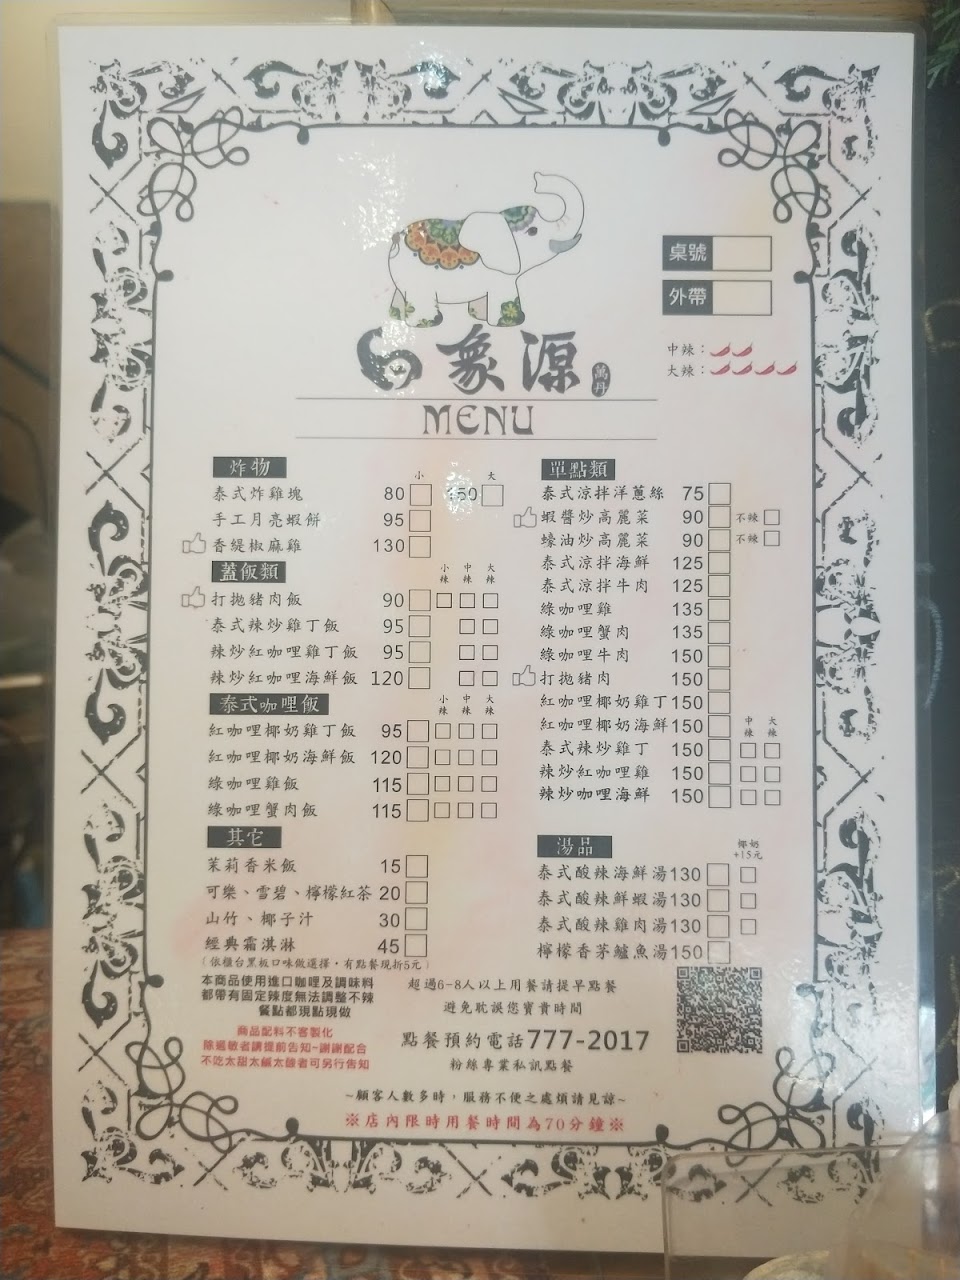 桌號
外帶
中辣：
大辣：
象源
萬丹
MENU
炸物
小 大
泰式炸雞塊 80 150
手工月亮蝦餅 95
香緹椒麻雞 130
蓋飯類
小辣 中辣 大辣
打拋豬肉飯 90
泰式辣炒雞丁飯 95
辣炒紅咖哩雞丁飯 95
辣炒紅咖哩海鮮飯 120
泰式咖哩飯
小辣 中辣 大辣
紅咖哩椰奶雞丁飯 95
紅咖哩椰奶海鮮飯 120
綠咖哩雞飯 115
綠咖哩蟹肉飯 115
其它
茉莉香米飯 15
可樂、雪碧、檸檬紅茶 20
山竹、椰子汁 30
經典霜淇淋 45
（依櫃台黑板口味做選擇，有點餐現折5元）
單點類
泰式涼拌洋蔥絲 75
蝦醬炒高麗菜 90 不辣
蠔油炒高麗菜 90 不辣
泰式涼拌海鮮 125
泰式涼拌牛肉 125
綠咖哩雞 135
綠咖哩蟹肉 135
綠咖哩牛肉 150
打拋豬肉 150
紅咖哩椰奶雞丁 150
紅咖哩椰奶海鮮 150
中辣 大辣
泰式辣炒雞丁 150
辣炒紅咖哩雞 150
辣炒咖哩海鮮 150
湯品
椰奶
+15元
泰式酸辣海鮮湯 130
泰式酸辣鮮蝦湯 130
泰式酸辣雞肉湯 130
檸檬香茅鱸魚湯 150
本商品使用進口咖哩及調味料
都帶有固定辣度無法調整不辣
餐點都現點現做
商品配料不客製化
除過敏者請提前告知~謝謝配合
不吃太甜太鹹太酸者可另行告知
超過6-8人以上用餐請提早點餐
避免耽誤您寶貴時間
點餐預約電話777-2017
粉絲專業私訊點餐
~顧客人數多時，服務不便之處煩請見諒~
※店內限時用餐時間為70分鐘※